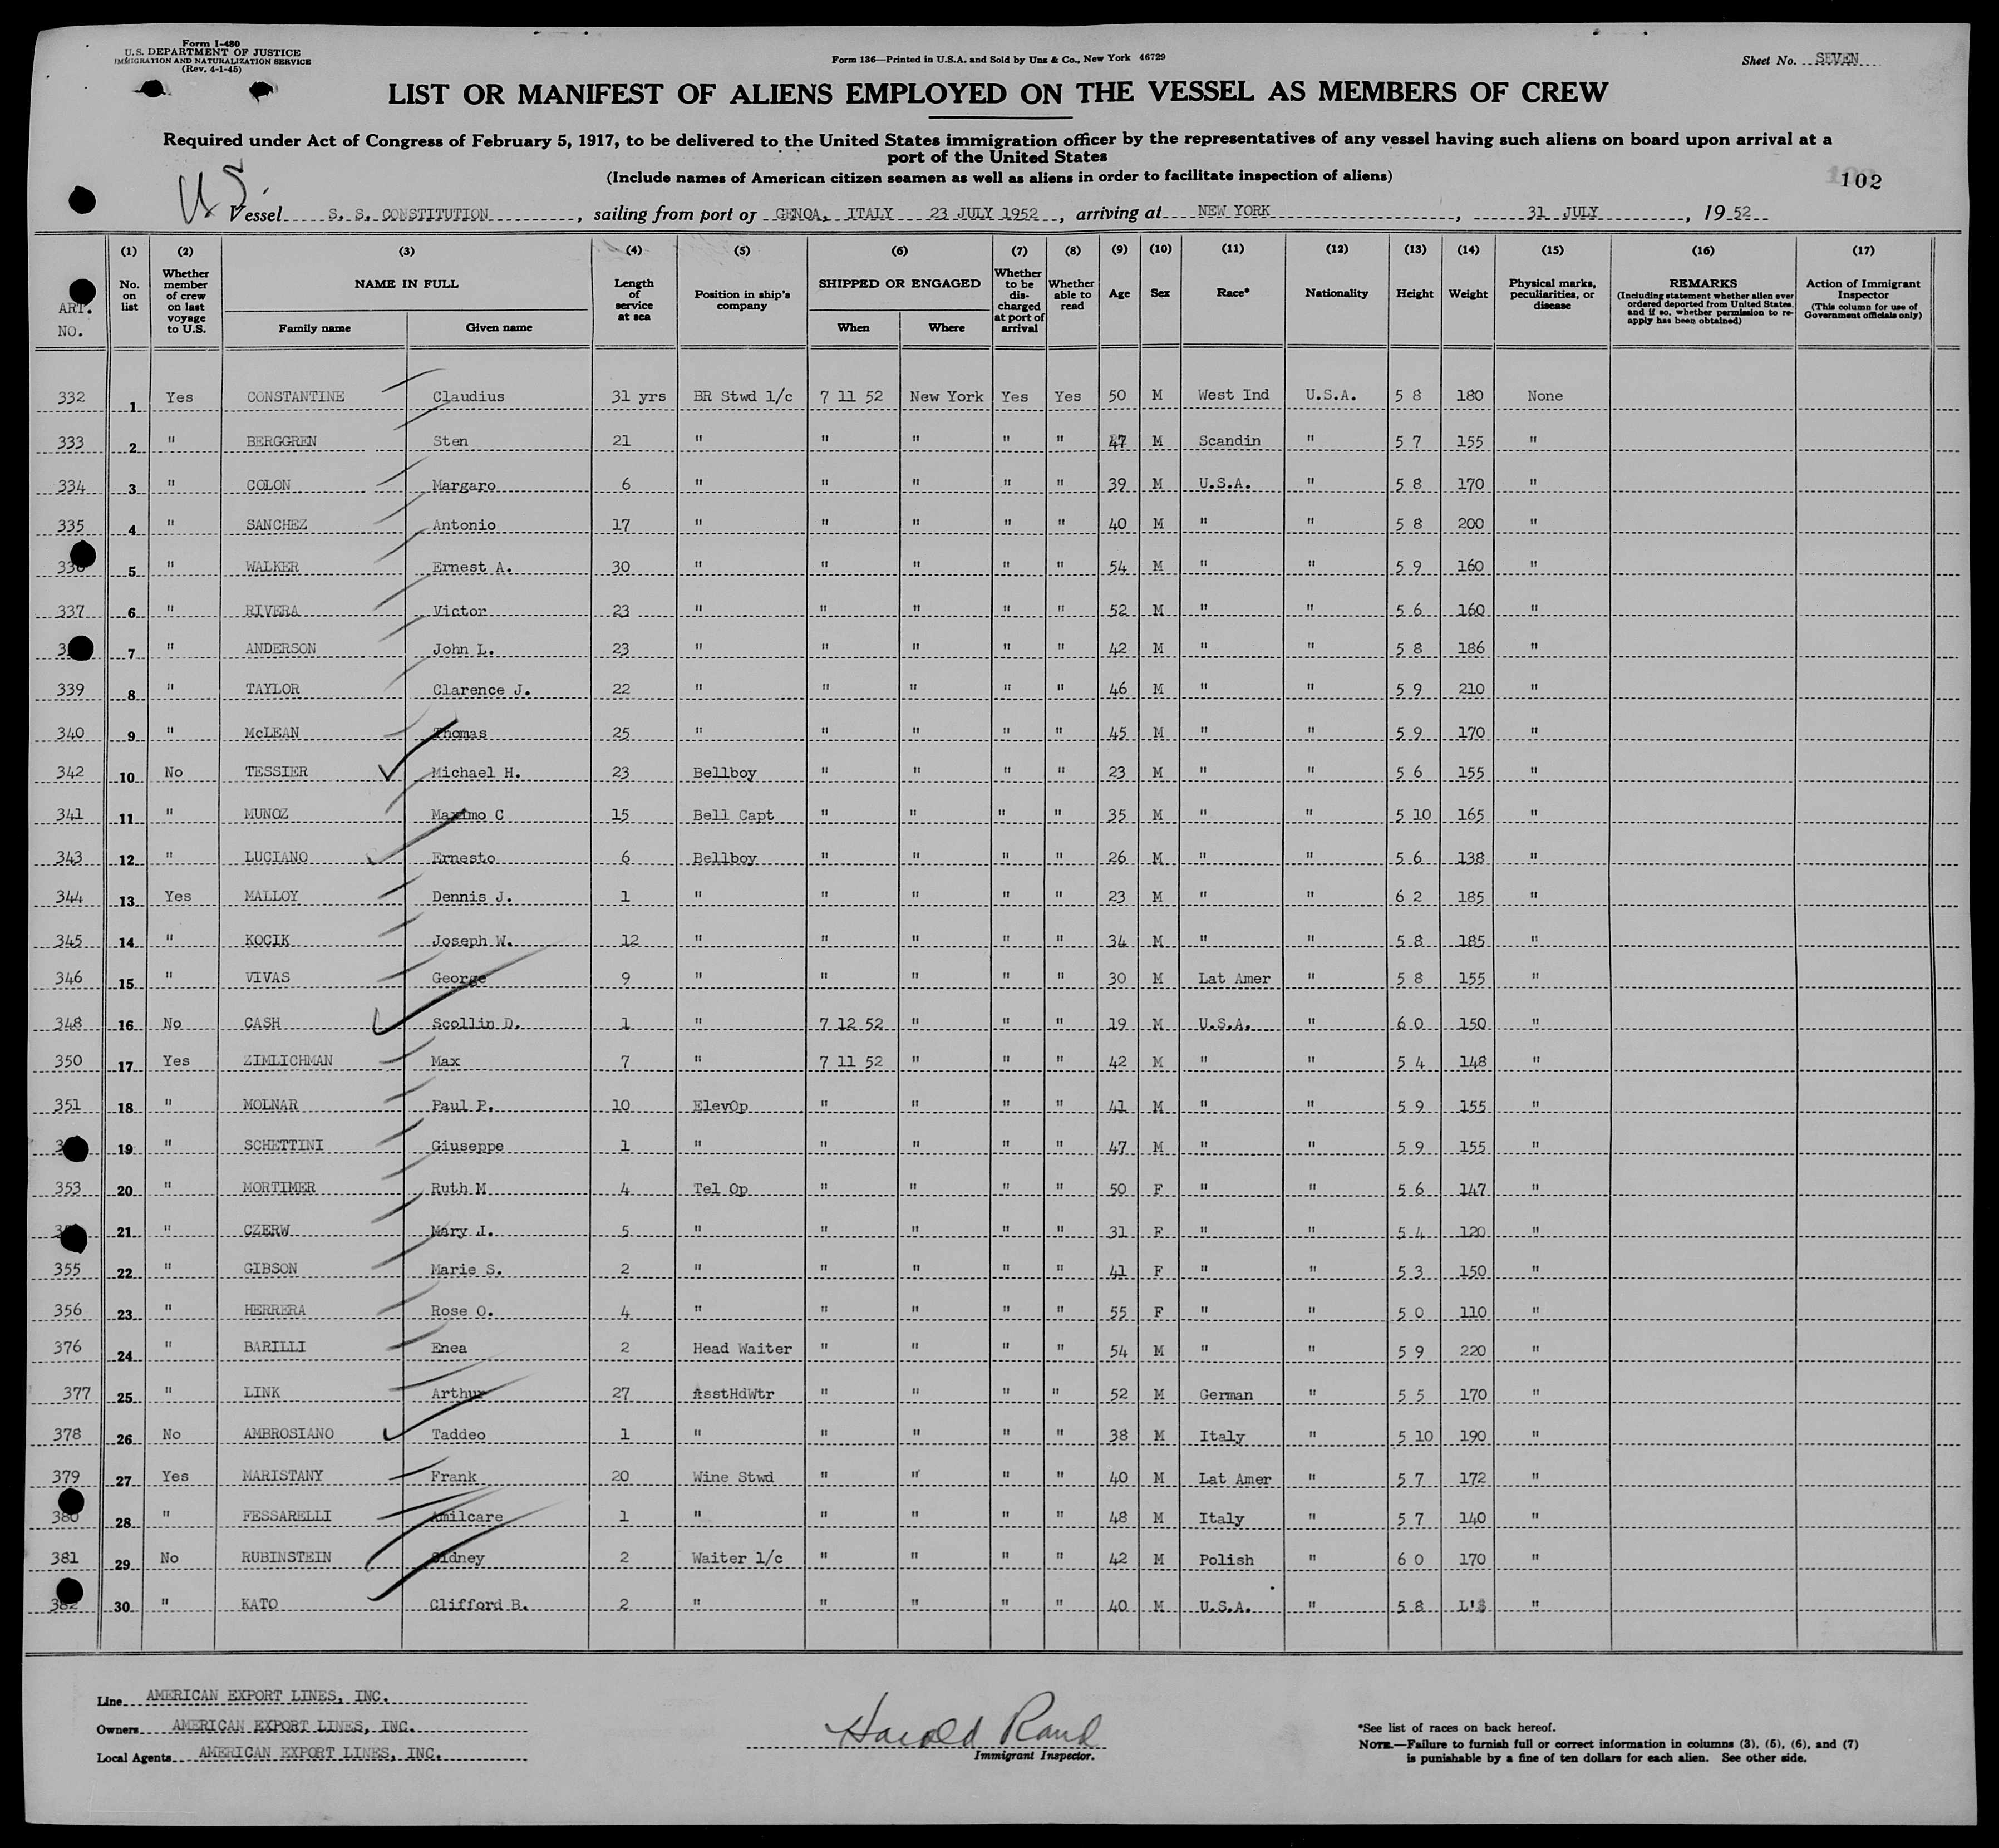 Form I-480
U.S. DEPARTMENT OF JUSTICE
IMMIGRATION AND NATURALIZATION SERVICE
(Rev. 4-1-45)
Form 136—Printed in U.S.A. and Sold by Unz & Co., New York 46729
Sheet No. SEVEN
LIST OR MANIFEST OF ALIENS EMPLOYED ON THE VESSEL AS MEMBERS OF CREW
Required under Act of Congress of February 5, 1917, to be delivered to the United States immigration officer by the representatives of any vessel having such aliens on board upon arrival at a
port of the United States
(Include names of American citizen seamen as well as aliens in order to facilitate inspection of aliens)
102
US.
Vessel S. S. CONSTITUTION, sailing from port of GENOA, ITALY 23 JULY 1952, arriving at NEW YORK, 31 JULY, 1952
(1) (2) (3) (4) (5) (6) (7) (8) (9) (10) (11) (12) (13) (14) (15) (16) (17)
ART. NO.
No. on list
Whether member of crew on last voyage to U.S.
NAME IN FULL
Family name Given name
Length of service at sea
Position in ship's company
SHIPPED OR ENGAGED
When Where
Whether to be discharged at port of arrival
Whether able to read
Age
Sex
Race*
Nationality
Height
Weight
Physical marks, peculiarities, or disease
REMARKS
(Including statement whether alien ever ordered deported from United States, and if so, whether permission to re-apply has been obtained)
Action of Immigrant Inspector
(This column for use of Government officials only)
332 1 Yes CONSTANTINE Claudius 31 yrs BR Stwd 1/c 7 11 52 New York Yes Yes 50 M West Ind U.S.A. 5 8 180 None
333 2 " BERGGREN Sten 21 " " " " " 47 M Scandin " 5 7 155 "
334 3 " COLON Margaro 6 " " " " " 39 M U.S.A. " 5 8 170 "
335 4 " SANCHEZ Antonio 17 " " " " " 40 M " " 5 8 200 "
5 " WALKER Ernest A. 30 " " " " " 54 M " " 5 9 160 "
337 6 " RIVERA Victor 23 " " " " " 52 M " " 5 6 160 "
7 " ANDERSON John L. 23 " " " " " 42 M " " 5 8 186 "
339 8 " TAYLOR Clarence J. 22 " " " " " 46 M " " 5 9 210 "
340 9 " McLEAN Thomas 25 " " " " " 45 M " " 5 9 170 "
342 10 No TESSIER Michael H. 23 Bellboy " " " " 23 M " " 5 6 155 "
341 11 " MUNOZ Maximo C 15 Bell Capt " " " " 35 M " " 5 10 165 "
343 12 " LUCIANO Ernesto 6 Bellboy " " " " 26 M " " 5 6 138 "
344 13 Yes MALLOY Dennis J. 1 " " " " " 23 M " " 6 2 185 "
345 14 " KOCIK Joseph W. 12 " " " " " 34 M " " 5 8 185 "
346 15 " VIVAS George 9 " " " " " 30 M Lat Amer " 5 8 155 "
348 16 No CASH Scollin D. 1 " 7 12 52 " " " 19 M U.S.A. " 6 0 150 "
350 17 Yes ZIMLICHMAN Max 7 " 7 11 52 " " " 42 M " " 5 4 148 "
351 18 " MOLNAR Paul P. 10 ElevOp " " " " 41 M " " 5 9 155 "
19 " SCHETTINI Giuseppe 1 " " " " " 47 M " " 5 9 155 "
353 20 " MORTIMER Ruth M 4 Tel Op " " " " 50 F " " 5 6 147 "
21 " CZERW Mary J. 5 " " " " " 31 F " " 5 4 120 "
355 22 " GIBSON Marie S. 2 " " " " " 41 F " " 5 3 150 "
356 23 " HERRERA Rose O. 4 " " " " " 55 F " " 5 0 110 "
376 24 " BARILLI Enea 2 Head Waiter " " " " 54 M " " 5 9 220 "
377 25 " LINK Arthur 27 AsstHdWtr " " " " 52 M German " 5 5 170 "
378 26 No AMBROSIANO Taddeo 1 " " " " " 38 M Italy " 5 10 190 "
379 27 Yes MARISTANY Frank 20 Wine Stwd " " " " 40 M Lat Amer " 5 7 172 "
380 28 " FESSARELLI Amilcare 1 " " " " " 48 M Italy " 5 7 140 "
381 29 No RUBINSTEIN Sidney 2 Waiter 1/c " " " " 42 M Polish " 6 0 170 "
382 30 " KATO Clifford B. 2 " " " " " 40 M U.S.A. " 5 8 "
Line AMERICAN EXPORT LINES, INC.
Owners AMERICAN EXPORT LINES, INC.
Local Agents AMERICAN EXPORT LINES, INC.
Harold Rand
Immigrant Inspector.
*See list of races on back hereof.
NOTE.—Failure to furnish full or correct information in columns (3), (5), (6), and (7)
is punishable by a fine of ten dollars for each alien. See other side.